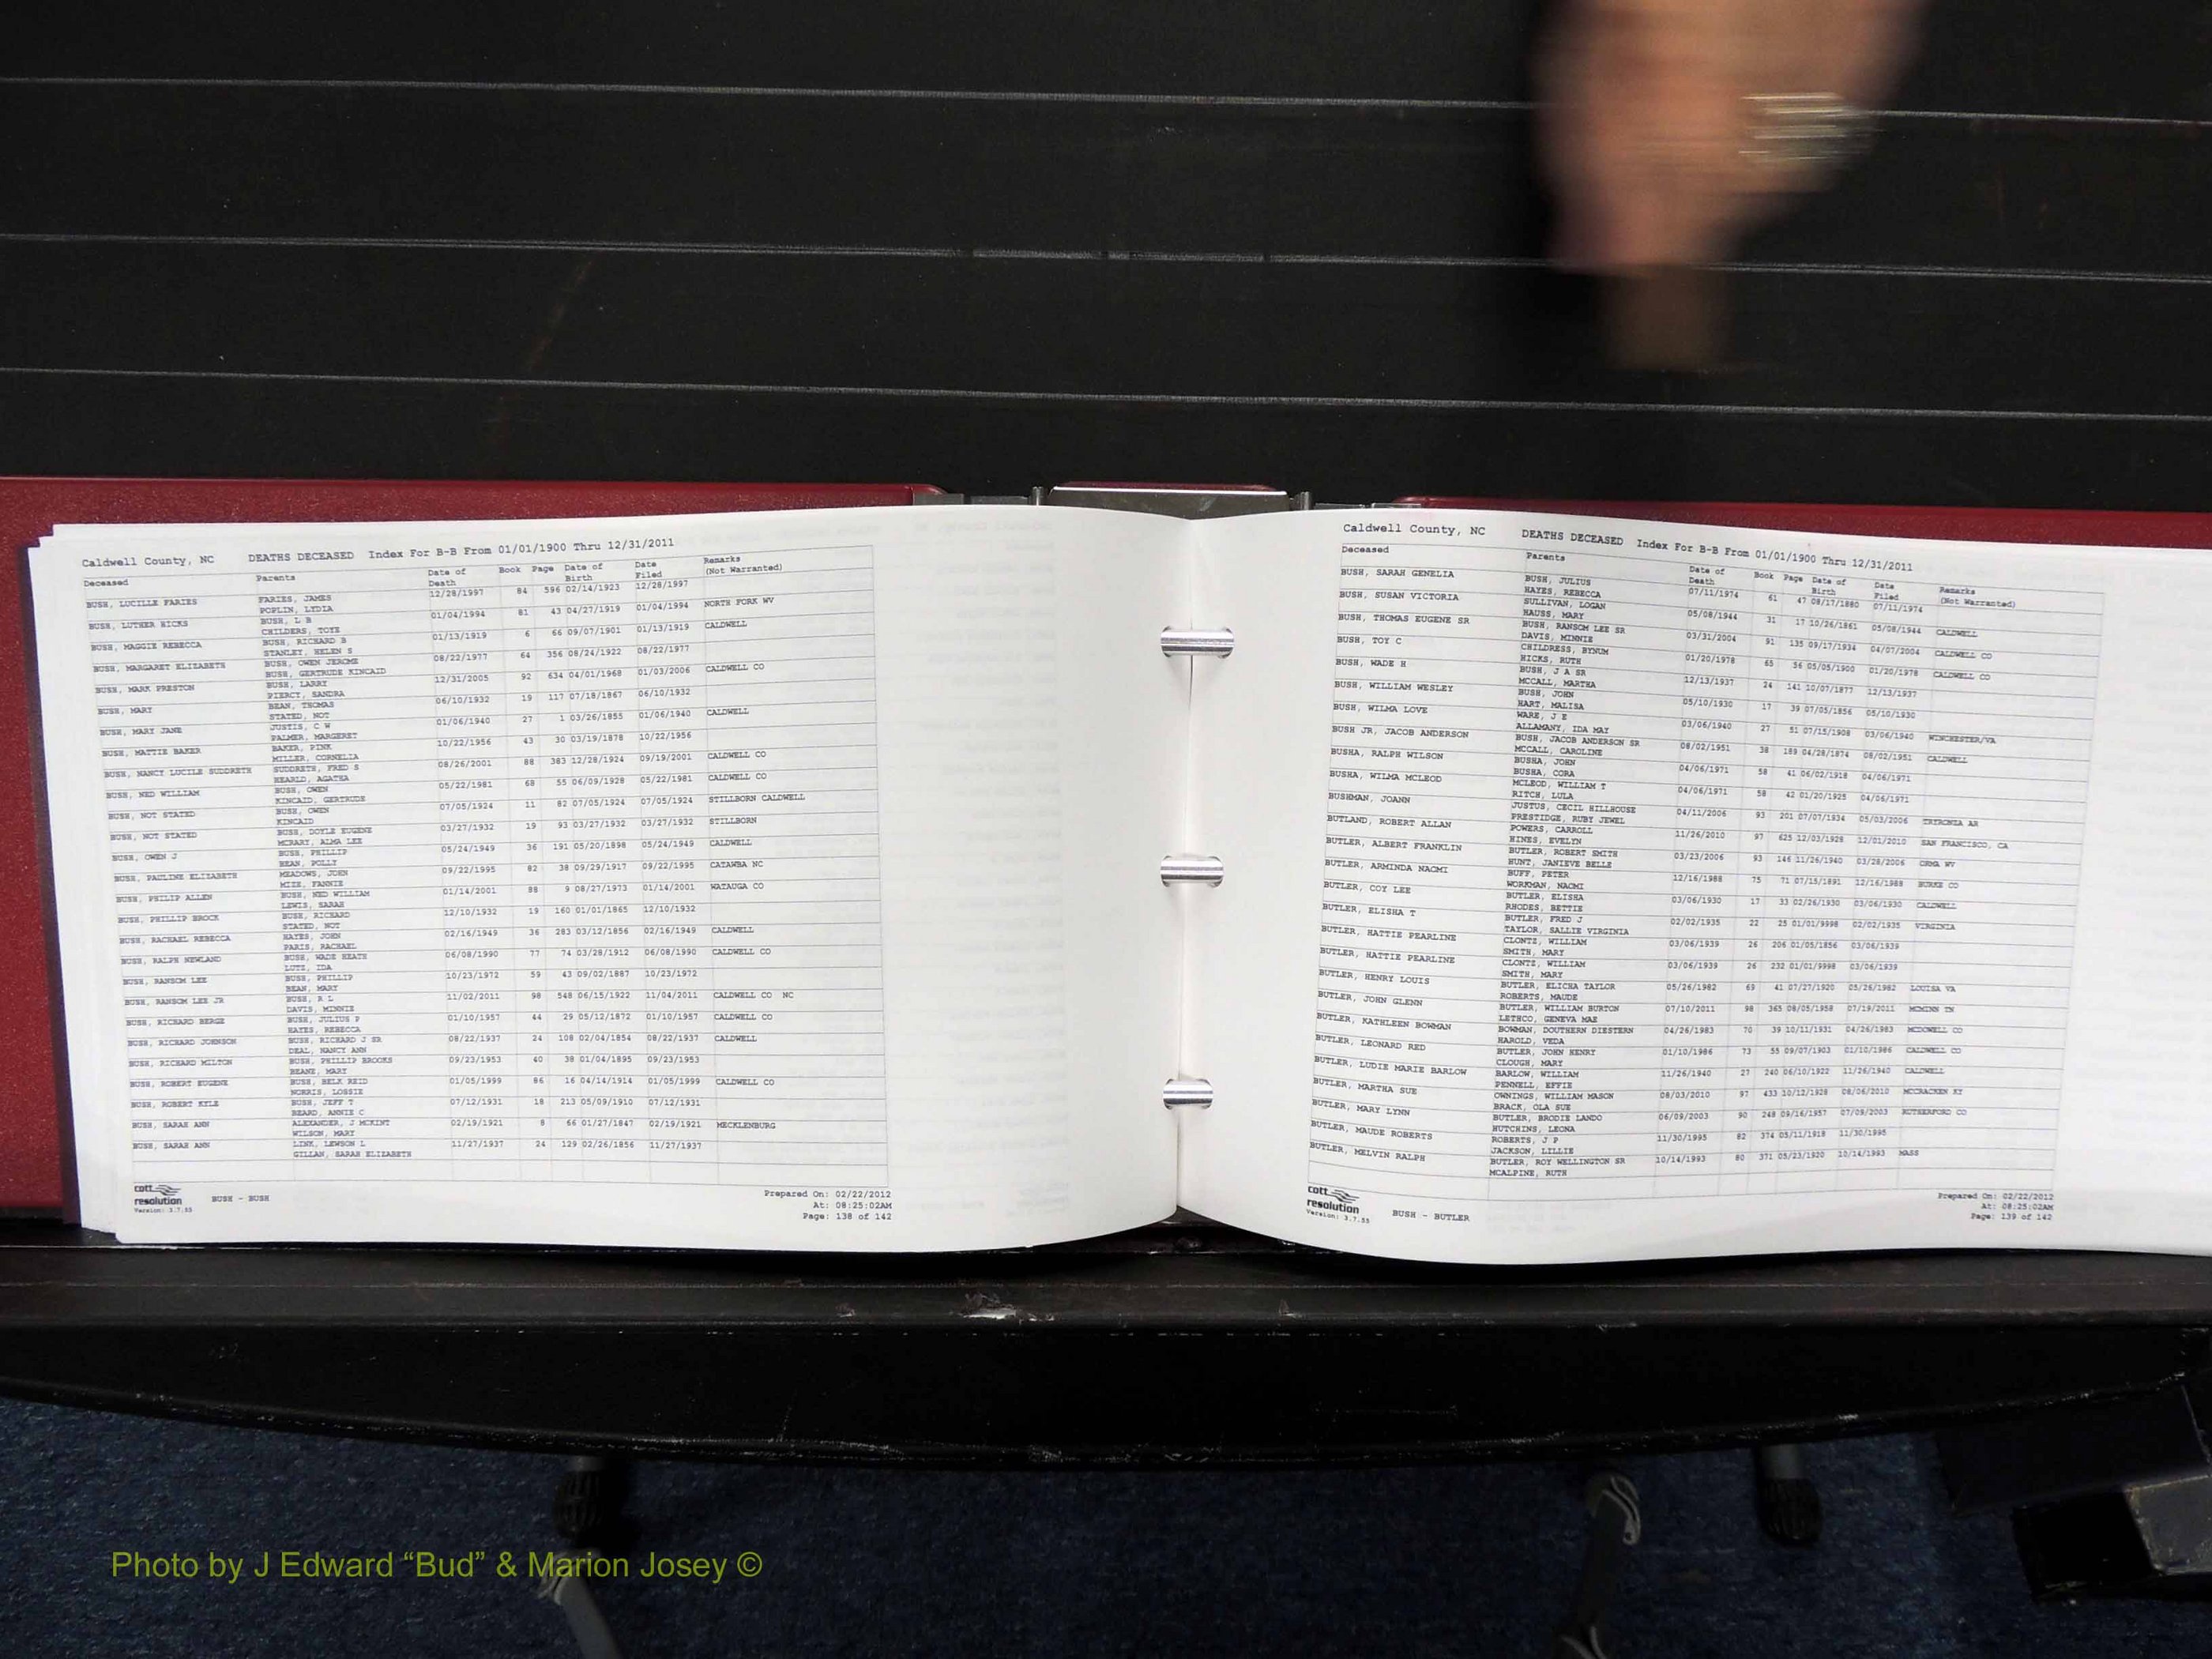 Caldwell County, NC DEATHS DECEASED Index For B-B From 01/01/1900 Thru 12/31/2011
Deceased Parents Date of Death Book Page Date of Birth Date Filed Remarks (Not Warranted)
BUSH, LUCILLE FARIES FARIES, JAMES 12/28/1997 84 596 02/14/1923 12/28/1997
POPLIN, LYDIA
BUSH, LUTHER HICKS BUSH, L B 01/04/1994 81 43 04/27/1919 01/04/1994 NORTH FORK WV
CHILDERS, TOYE
BUSH, MAGGIE REBECCA BUSH, RICHARD B 01/13/1919 6 66 09/07/1901 01/13/1919 CALDWELL
STANLEY, HELEN S
BUSH, MARGARET ELIZABETH BUSH, OWEN JEROME 08/22/1977 64 356 08/24/1922 08/22/1977
BUSH, GERTRUDE KINCAID
BUSH, MARK PRESTON BUSH, LARRY 12/31/2005 92 634 04/01/1968 01/03/2006 CALDWELL CO
PIERCY, SANDRA
BUSH, MARY BEAN, THOMAS 06/10/1932 19 117 07/18/1867 06/10/1932
STATED, NOT
BUSH, MARY JANE JUSTIS, C W 01/06/1940 27 1 03/26/1855 01/06/1940 CALDWELL
PALMER, MARGERET
BUSH, MATTIE BAKER BAKER, PINK 10/22/1956 43 30 03/19/1878 10/22/1956
MILLER, CORNELIA
BUSH, NANCY LUCILE SUDDRETH SUDDRETH, FRED S 08/26/2001 88 383 12/28/1924 09/19/2001 CALDWELL CO
HEARLD, AGATHA
BUSH, NED WILLIAM BUSH, OWEN 05/22/1981 68 55 06/09/1928 05/22/1981 CALDWELL CO
KINCAID, GERTRUDE
BUSH, NOT STATED BUSH, OWEN 07/05/1924 11 82 07/05/1924 07/05/1924 STILLBORN CALDWELL
KINCAID
BUSH, NOT STATED BUSH, DOYLE EUGENE 03/27/1932 19 93 03/27/1932 03/27/1932 STILLBORN
MCRARY, ALMA LEE
BUSH, OWEN J BUSH, PHILLIP 05/24/1949 36 191 05/20/1898 05/24/1949 CALDWELL
BEAN, POLLY
BUSH, PAULINE ELIZABETH MEADOWS, JOHN 09/22/1995 82 38 09/29/1917 09/22/1995 CATAWBA NC
MIZE, FANNIE
BUSH, PHILIP ALLEN BUSH, NED WILLIAM 01/14/2001 88 9 08/27/1973 01/14/2001 WATAUGA CO
LEWIS, SARAH
BUSH, PHILLIP BROCK BUSH, RICHARD 12/10/1932 19 160 01/01/1865 12/10/1932
STATED, NOT
BUSH, RACHAEL REBECCA HAYES, JOHN 02/16/1949 36 283 03/12/1856 02/16/1949 CALDWELL
PARIS, RACHAEL
BUSH, RALPH NEWLAND BUSH, WADE HEATH 06/08/1990 77 74 03/28/1912 06/08/1990 CALDWELL CO
LUTZ, IDA
BUSH, RANSOM LEE BUSH, PHILLIP 10/23/1972 59 43 09/02/1887 10/23/1972
BEAN, MARY
BUSH, RANSOM LEE JR BUSH, R L 11/02/2011 98 548 06/15/1922 11/04/2011 CALDWELL CO NC
DAVIS, MINNIE
BUSH, RICHARD BERGE BUSH, JULIUS P 01/10/1957 44 29 05/12/1872 01/10/1957 CALDWELL CO
HAYES, REBECCA
BUSH, RICHARD JOHNSON BUSH, RICHARD J SR 08/22/1937 24 108 02/04/1854 08/22/1937 CALDWELL
DEAL, NANCY ANN
BUSH, RICHARD MILTON BUSH, PHILLIP BROOKS 09/23/1953 40 38 01/04/1895 09/23/1953
BEANE, MARY
BUSH, ROBERT EUGENE BUSH, BELK REID 01/05/1999 86 16 04/14/1914 01/05/1999 CALDWELL CO
NORRIS, LOSSIE
BUSH, ROBERT KYLE BUSH, JEFF T 07/12/1931 18 213 05/09/1910 07/12/1931
BEARD, ANNIE C
BUSH, SARAH ANN ALEXANDER, J MCKINT 02/19/1921 8 66 01/27/1847 02/19/1921 MECKLENBURG
WILSON, MARY
BUSH, SARAH ANN LINK, LEWSON L 11/27/1937 24 129 02/26/1856 11/27/1937
GILLAN, SARAH ELIZABETH
cott resolution
Version: 3.7.55
BUSH - BUSH
Prepared On: 02/22/2012
At: 08:25:02AM
Page: 138 of 142
Caldwell County, NC DEATHS DECEASED Index For B-B From 01/01/1900 Thru 12/31/2011
Deceased Parents Date of Death Book Page Date of Birth Date Filed Remarks (Not Warranted)
BUSH, SARAH GENELIA BUSH, JULIUS 07/11/1974 61 47 08/17/1880 07/11/1974
HAYES, REBECCA
BUSH, SUSAN VICTORIA SULLIVAN, LOGAN 05/08/1944 31 17 10/26/1861 05/08/1944 CALDWELL
HAUSS, MARY
BUSH, THOMAS EUGENE SR BUSH, RANSOM LEE SR 03/31/2004 91 135 09/17/1934 04/07/2004 CALDWELL CO
DAVIS, MINNIE
BUSH, TOY C CHILDRESS, BYNUM 01/20/1978 65 56 05/05/1900 01/20/1978 CALDWELL CO
HICKS, RUTH
BUSH, WADE H BUSH, J A SR 12/13/1937 24 141 10/07/1877 12/13/1937
MCCALL, MARTHA
BUSH, WILLIAM WESLEY BUSH, JOHN 05/10/1930 17 39 07/05/1856 05/10/1930
HART, MALISA
BUSH, WILMA LOVE WARE, J E 03/06/1940 27 51 07/15/1908 03/06/1940 WINCHESTER/VA
ALLAMANY, IDA MAY
BUSH JR, JACOB ANDERSON BUSH, JACOB ANDERSON SR 08/02/1951 38 189 04/28/1874 08/02/1951 CALDWELL
MCCALL, CAROLINE
BUSHA, RALPH WILSON BUSHA, JOHN 04/06/1971 58 41 06/02/1918 04/06/1971
BUSHA, CORA
BUSHA, WILMA MCLEOD MCLEOD, WILLIAM T 04/06/1971 58 42 01/20/1925 04/06/1971
RITCH, LULA
BUSHMAN, JOANN JUSTUS, CECIL HILLHOUSE 04/11/2006 93 201 07/07/1934 05/03/2006 TRYRONZA AR
PRESTIDGE, RUBY JEWEL
BUTLAND, ROBERT ALLAN POWERS, CARROLL 11/26/2010 97 625 12/03/1928 12/01/2010 SAN FRANCISCO, CA
HINES, EVELYN
BUTLER, ALBERT FRANKLIN BUTLER, ROBERT SMITH 03/23/2006 93 146 11/26/1940 03/28/2006 ORMA WV
HUNT, JANIEVE BELLE
BUTLER, ARMINDA NAOMI BUFF, PETER 12/16/1988 75 71 07/15/1891 12/16/1988 BURKE CO
WORKMAN, NAOMI
BUTLER, COY LEE BUTLER, ELISHA 03/06/1930 17 33 02/26/1930 03/06/1930 CALDWELL
RHODES, BETTIE
BUTLER, ELISHA T BUTLER, FRED J 02/02/1935 22 25 01/01/9998 02/02/1935 VIRGINIA
TAYLOR, SALLIE VIRGINIA
BUTLER, HATTIE PEARLINE CLONTZ, WILLIAM 03/06/1939 26 206 01/05/1856 03/06/1939
SMITH, MARY
BUTLER, HATTIE PEARLINE CLONTZ, WILLIAM 03/06/1939 26 232 01/01/9998 03/06/1939
SMITH, MARY
BUTLER, HENRY LOUIS BUTLER, ELICHA TAYLOR 05/26/1982 69 41 07/27/1920 05/26/1982 LOUISA VA
ROBERTS, MAUDE
BUTLER, JOHN GLENN BUTLER, WILLIAM BURTON 07/10/2011 98 365 08/05/1958 07/19/2011 MCMINN TN
LETHCO, GENEVA MAE
BUTLER, KATHLEEN BOWMAN BOWMAN, DOUTHERN DIESTERN 04/26/1983 70 39 10/11/1931 04/26/1983 MCDOWELL CO
HAROLD, VEDA
BUTLER, LEONARD RED BUTLER, JOHN HENRY 01/10/1986 73 55 09/07/1903 01/10/1986 CALDWELL CO
CLOUGH, MARY
BUTLER, LUDIE MARIE BARLOW BARLOW, WILLIAM 11/26/1940 27 240 06/10/1922 11/26/1940 CALDWELL
PENNELL, EFFIE
BUTLER, MARTHA SUE OWNINGS, WILLIAM MASON 08/03/2010 97 433 10/12/1928 08/06/2010 MCCRACKEN KY
BRACK, OLA SUE
BUTLER, MARY LYNN BUTLER, BRODIE LANDO 06/09/2003 90 248 09/16/1957 07/09/2003 RUTHERFORD CO
HUTCHINS, LEONA
BUTLER, MAUDE ROBERTS ROBERTS, J P 11/30/1995 82 374 05/11/1918 11/30/1995
JACKSON, LILLIE
BUTLER, MELVIN RALPH BUTLER, ROY WELLINGTON SR 10/14/1993 80 371 05/23/1920 10/14/1993 MASS
MCALPINE, RUTH
cott resolution
Version: 3.7.55
BUSH - BUTLER
Prepared On: 02/22/2012
At: 08:25:02AM
Page: 139 of 142
Photo by J Edward “Bud” & Marion Josey ©